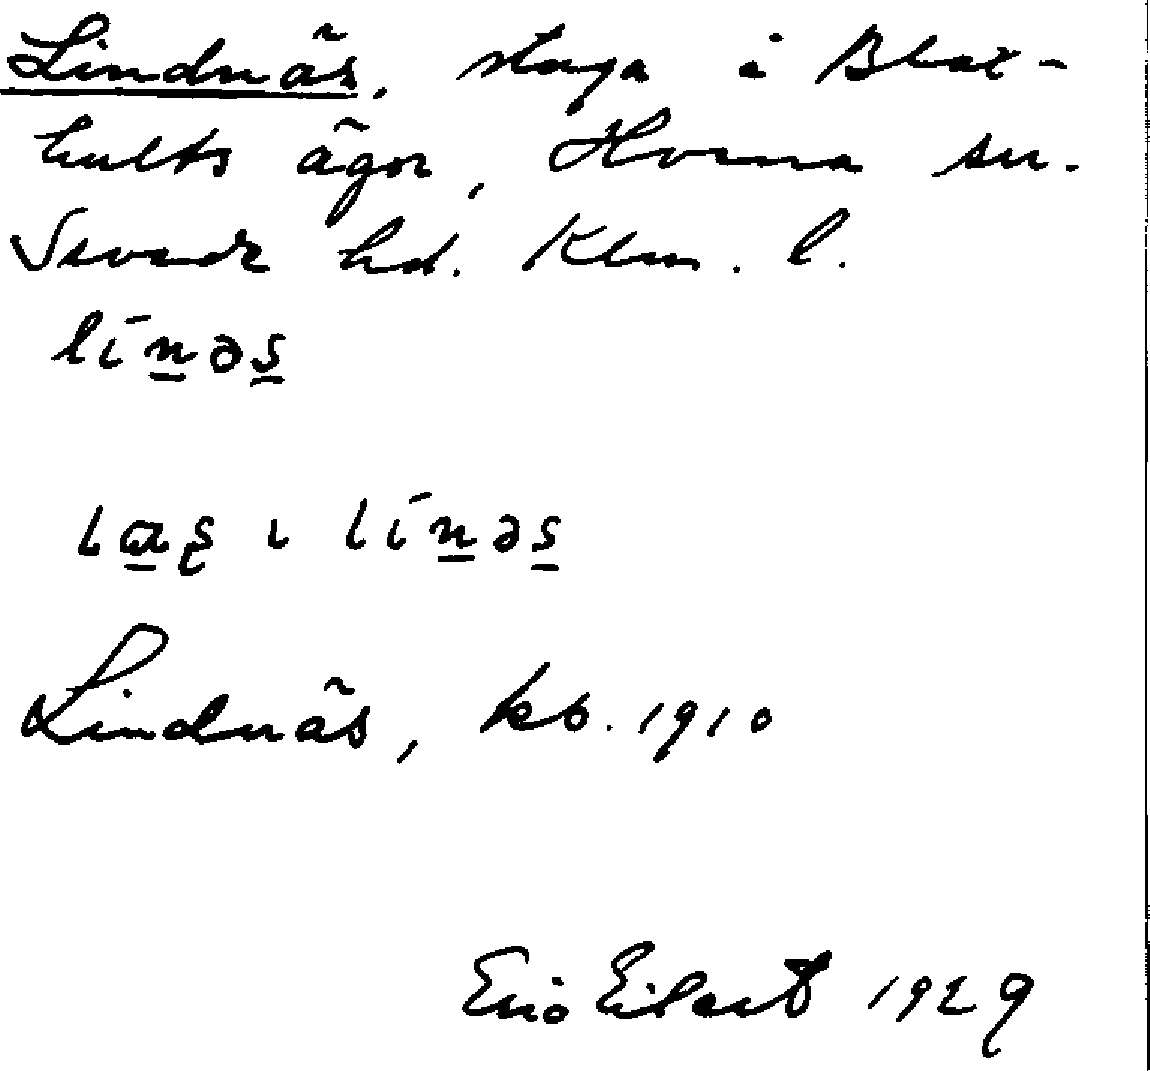 Lindnäs, stuga i Blat-
hults ägor, Horna sn.
Sevede hd. Klm. l.
línəs
línəs
Lindnäs, kb. 1910
Eric Eilert 1929